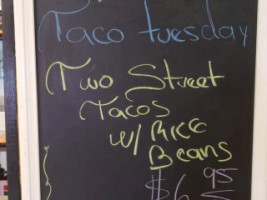 Taco tuesday
Two Street
Tacos
w/ Rice
Beans
$6 95